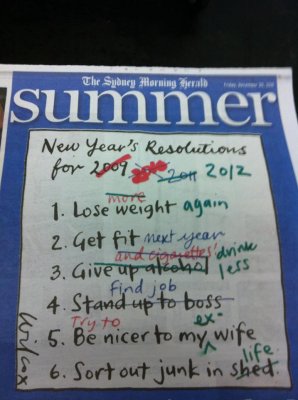 The Sydney Morning Herald
summer
New Year's Resolutions
for 2009 2010 2011 2012
more
1. Lose weight again
2. Get fit next year
and cigarettes! drink
3. Give up alcohol less
find job
4. Stand up to boss
Try to ex-
5. Be nicer to my wife
life
6. Sort out junk in shed.
Wilcox